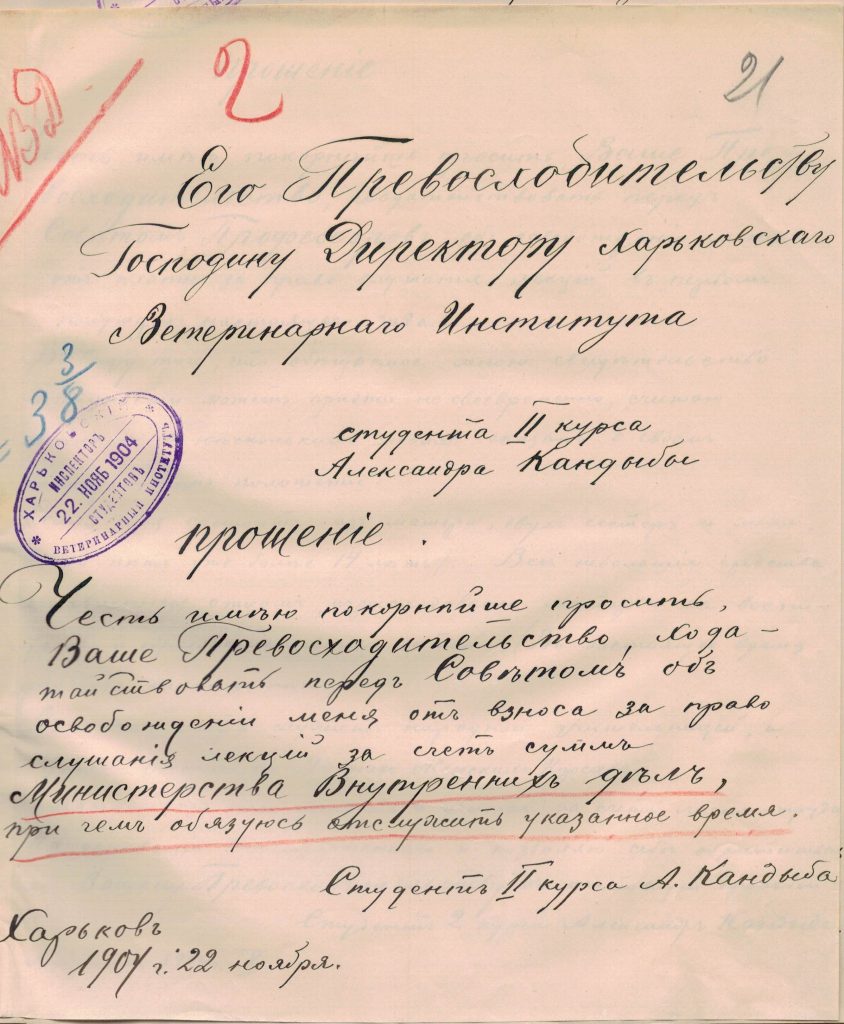 2
21
Его Превосходительству
Господину Директору Харьковскаго
Ветеринарнаго Института
3 3/8
ХАРЬКОВСКІЙ
ИНСПЕКТОРЪ
22. НОЯБ 1904
СТУДЕНТОВЪ
ВЕТЕРИНАРНЫЙ ИНСТИТУТЪ
студента II курса
Александра Кандыбы
прошеніе.
Честь имѣю покорнѣйше просить,
Ваше Превосходительство, хода-
тайствовать передъ Совѣтомъ объ
освобожденіи меня отъ взноса за право
слушанія лекцій за счетъ суммъ
Министерства Внутреннихъ дѣлъ,
при чемъ обязуюсь отслужить указанное время.
Студентъ II курса А. Кандыба
Харьковъ
1904 г. 22 ноября.